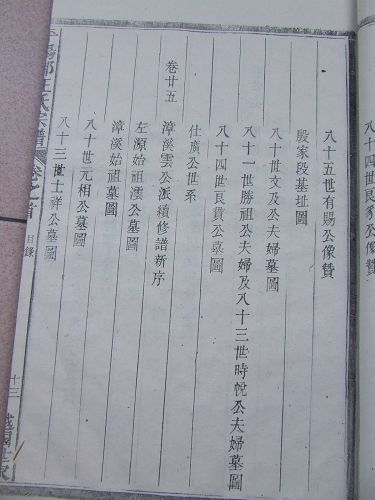 八十五世有賜公像贊
殷家段基址圖
八十世文及公夫婦墓圖
八十一世勝祖公夫婦及八十三世時悅公夫婦墓圖
八十四世艮貫公墓圖
仕廣公世系
卷廿五
漳溪雲公派續修譜新序
左源始祖澐公墓圖
漳溪始祖墓圖
八十世元相公墓圖
八十三世士祥公墓圖
陽郡汪氏宗譜
卷之首
目錄
十三
越國世家